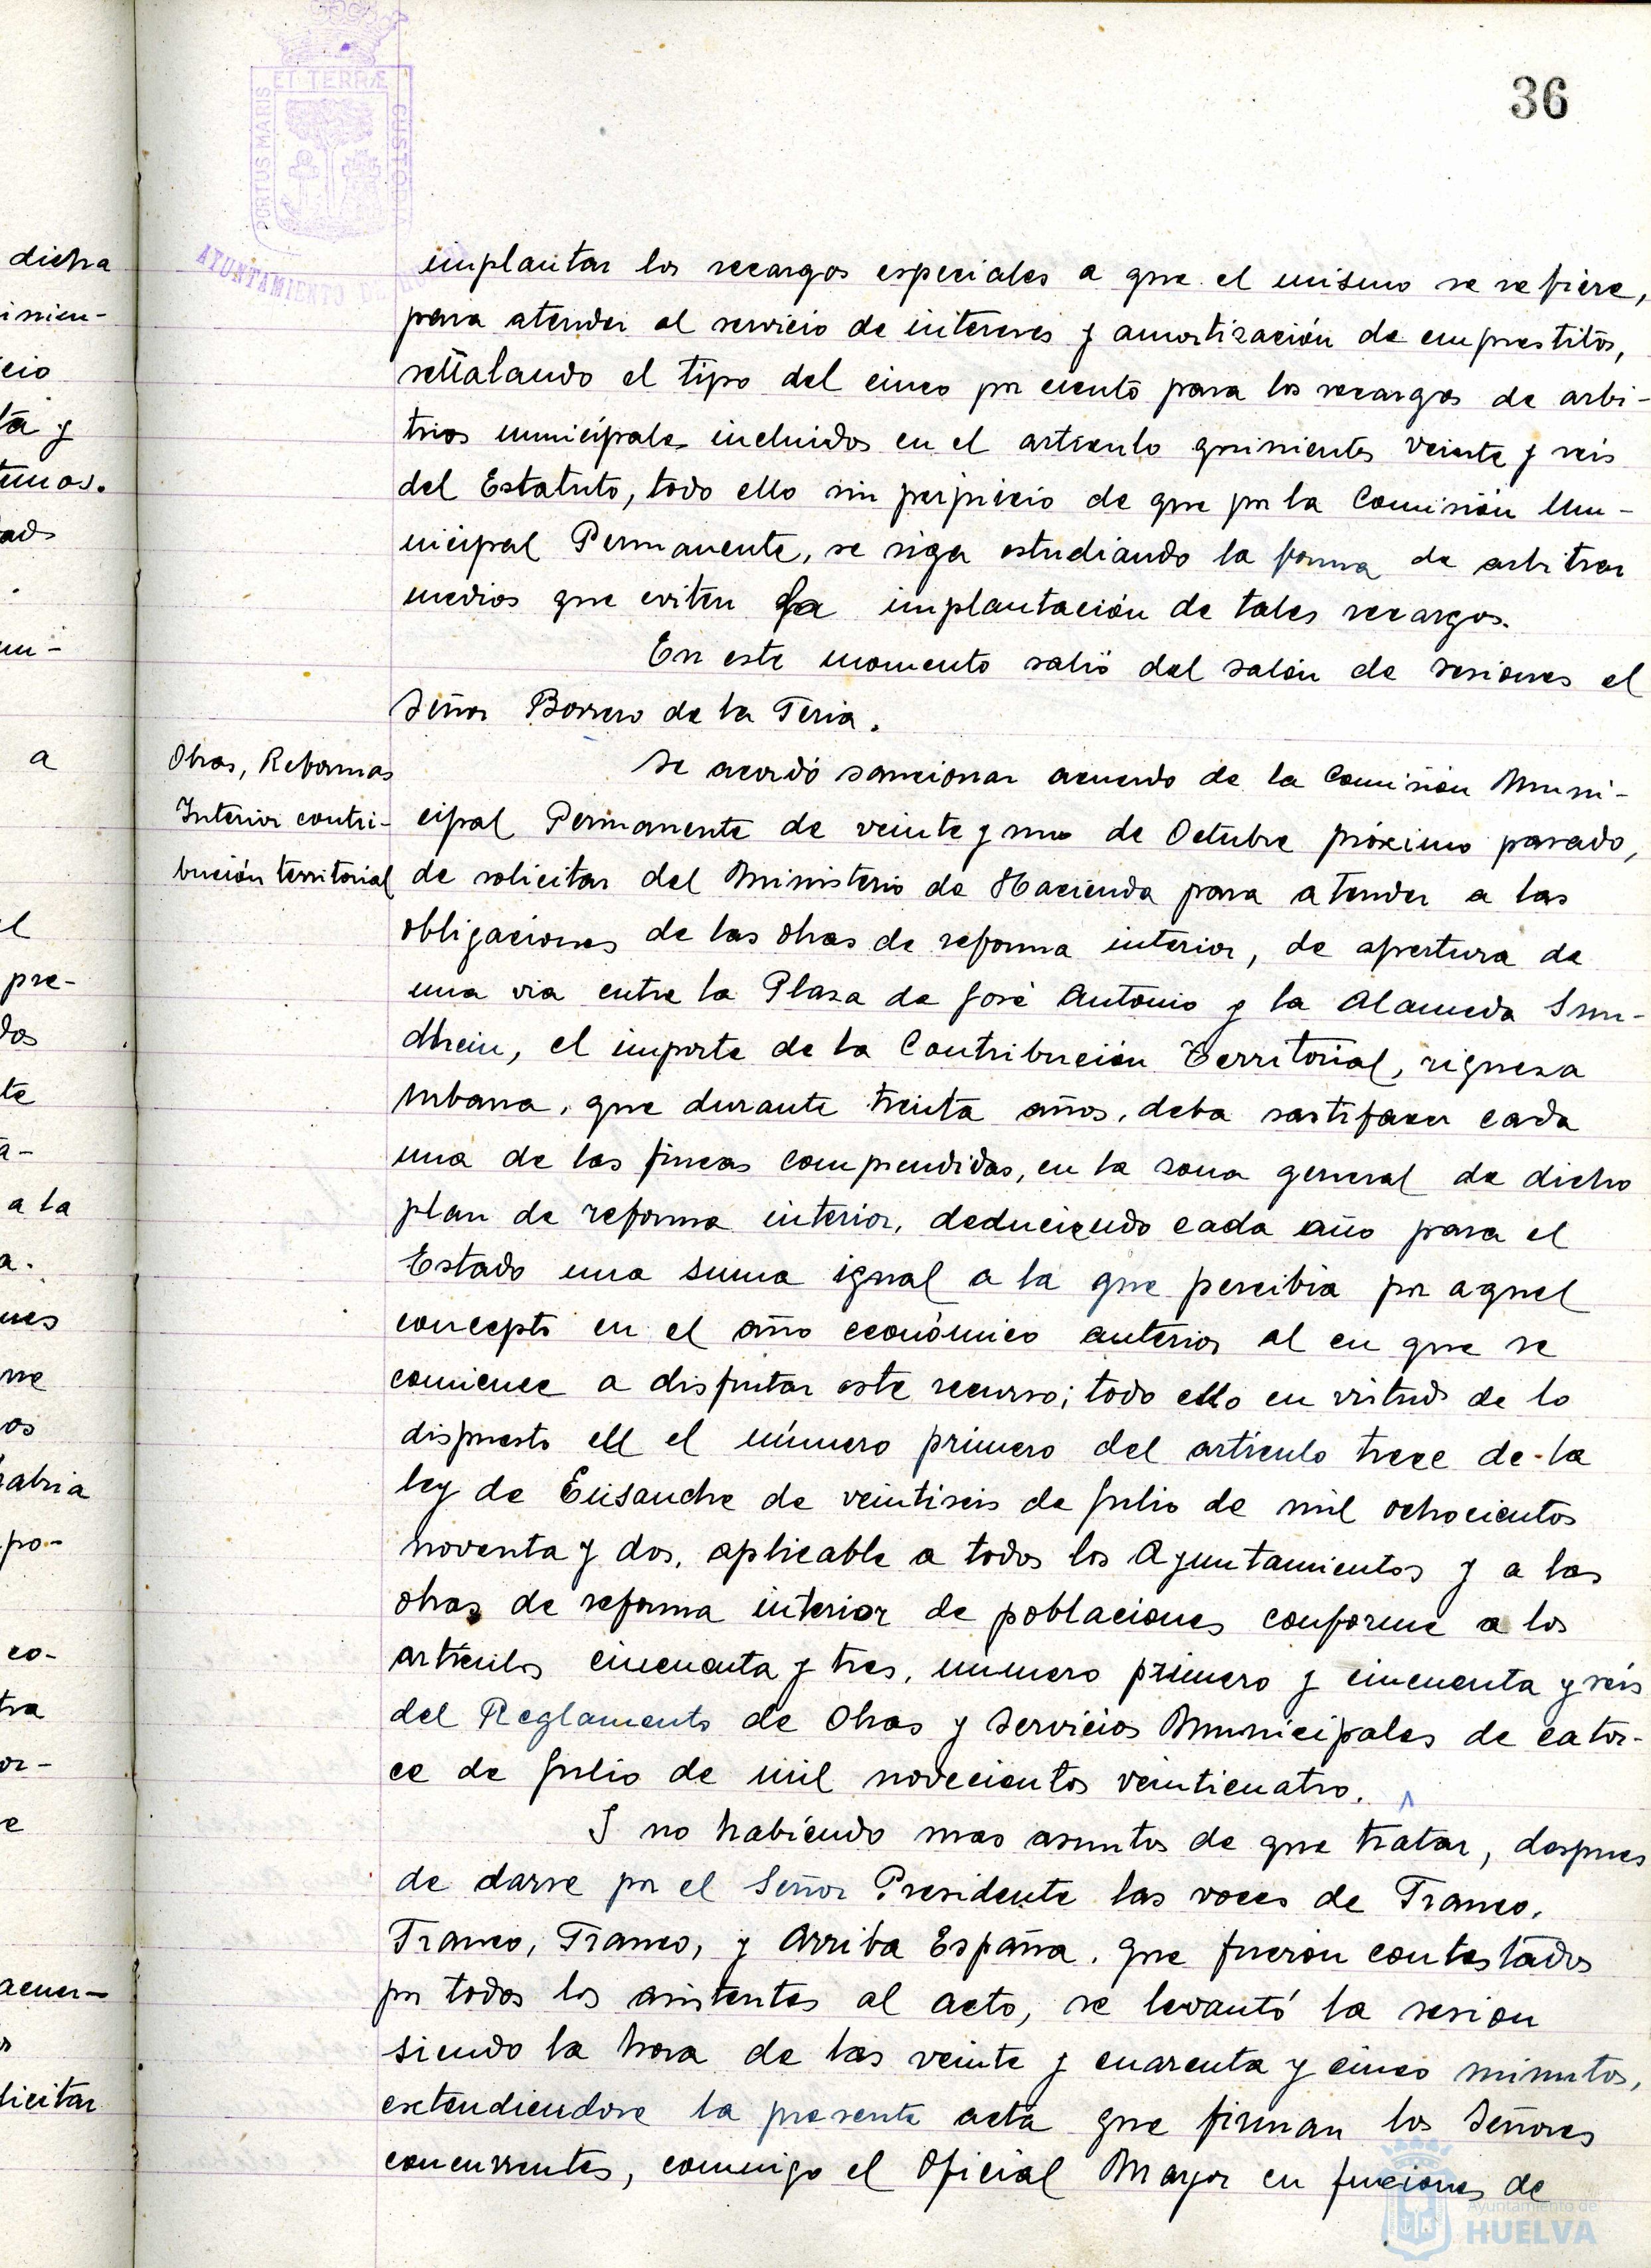 36
PORTUS MARIS ET TERRÆ CUSTODIA
AYUNTAMIENTO DE
implantar los recargos especiales a que el mismo se refiere,
para atender al servicio de intereses y amortización de emprestitos,
señalando el tipo del cinco por ciento para los recargos de arbi-
trios municipales incluidos en el artículo quinientos veinte y seis
del Estatuto, todo ello sin perjuicio de que por la Comisión Mu-
nicipal Permanente, se siga estudiando la forma de arbitrar
medios que eviten la implantación de tales recargos.
En este momento salió del salón de sesiones el
Señor Borrero de la Feria.
Obras, Reformas
Interior contri-
bución territorial
Se acordó sancionar acuerdo de la Comisión Muni-
cipal Permanente de veinte y uno de Octubre próximo pasado,
de solicitar del Ministerio de Hacienda para atender a las
obligaciones de las obras de reforma interior, de apertura de
una via entre la Plaza de José Antonio y la Alameda Sun-
dhein, el importe de la Contribución Territorial, riqueza
urbana, que durante treinta años, deba sastifacer cada
una de las fincas comprendidas, en la zona general de dicho
plan de reforma interior, deduciendo cada año para el
Estado una suma igual a la que percibia por aquel
concepto en el año económico anterior al en que se
comience a disfrutar este recurso; todo ello en virtud de lo
dispuesto en el número primero del artículo trece de la
ley de Ensanche de veintiseis de Julio de mil ochocientos
noventa y dos, aplicable a todos los Ayuntamientos y a las
obras de reforma interior de poblaciones conforme a los
artículos cincuenta y tres, numero primero y cincuenta y seis
del Reglamento de Obras y Servicios Municipales de cator-
ce de Julio de mil novecientos veinticuatro.
Y no habiendo mas asuntos de que tratar, despues
de darse por el Señor Presidente las voces de Franco,
Franco, Franco, y Arriba España, que fueron contestados
por todos los asistentes al acto, se levantó la sesion
siendo la hora de las veinte y cuarenta y cinco minutos,
extendiendose la presente acta que firman los Señores
concurrentes, conmigo el Oficial Mayor en funciones de
Ayuntamiento de
HUELVA